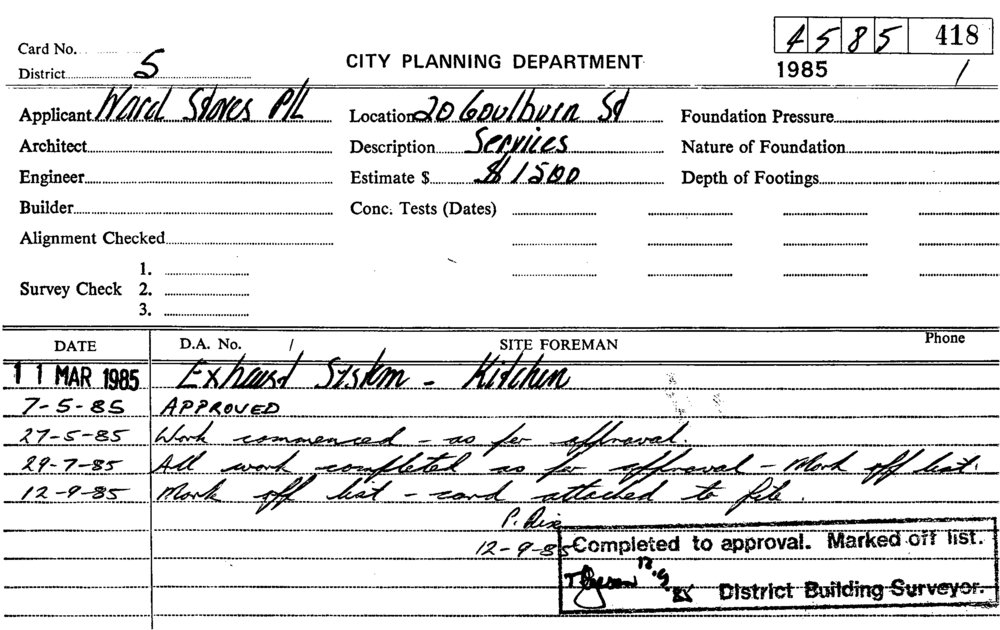 Card No. 4 5 8 5 418
District 5 CITY PLANNING DEPARTMENT 1985 /
Applicant Ward Stores P/L Location 20 Goulburn St Foundation Pressure
Architect Description Services Nature of Foundation
Engineer Estimate $ $1500 Depth of Footings
Builder Conc. Tests (Dates)
Alignment Checked
1.
Survey Check 2.
3.
DATE D.A. No. / SITE FOREMAN Phone
11 MAR 1985 Exhaust System - Kitchen
7-5-85 APPROVED
27-5-85 Work commenced - as per approval.
29-7-85 All work completed as per approval - Mark off list.
12-9-85 Mark off list - card attached to file.
P.
12-9-85 Completed to approval. Marked off list.
12.9.85 District Building Surveyor.